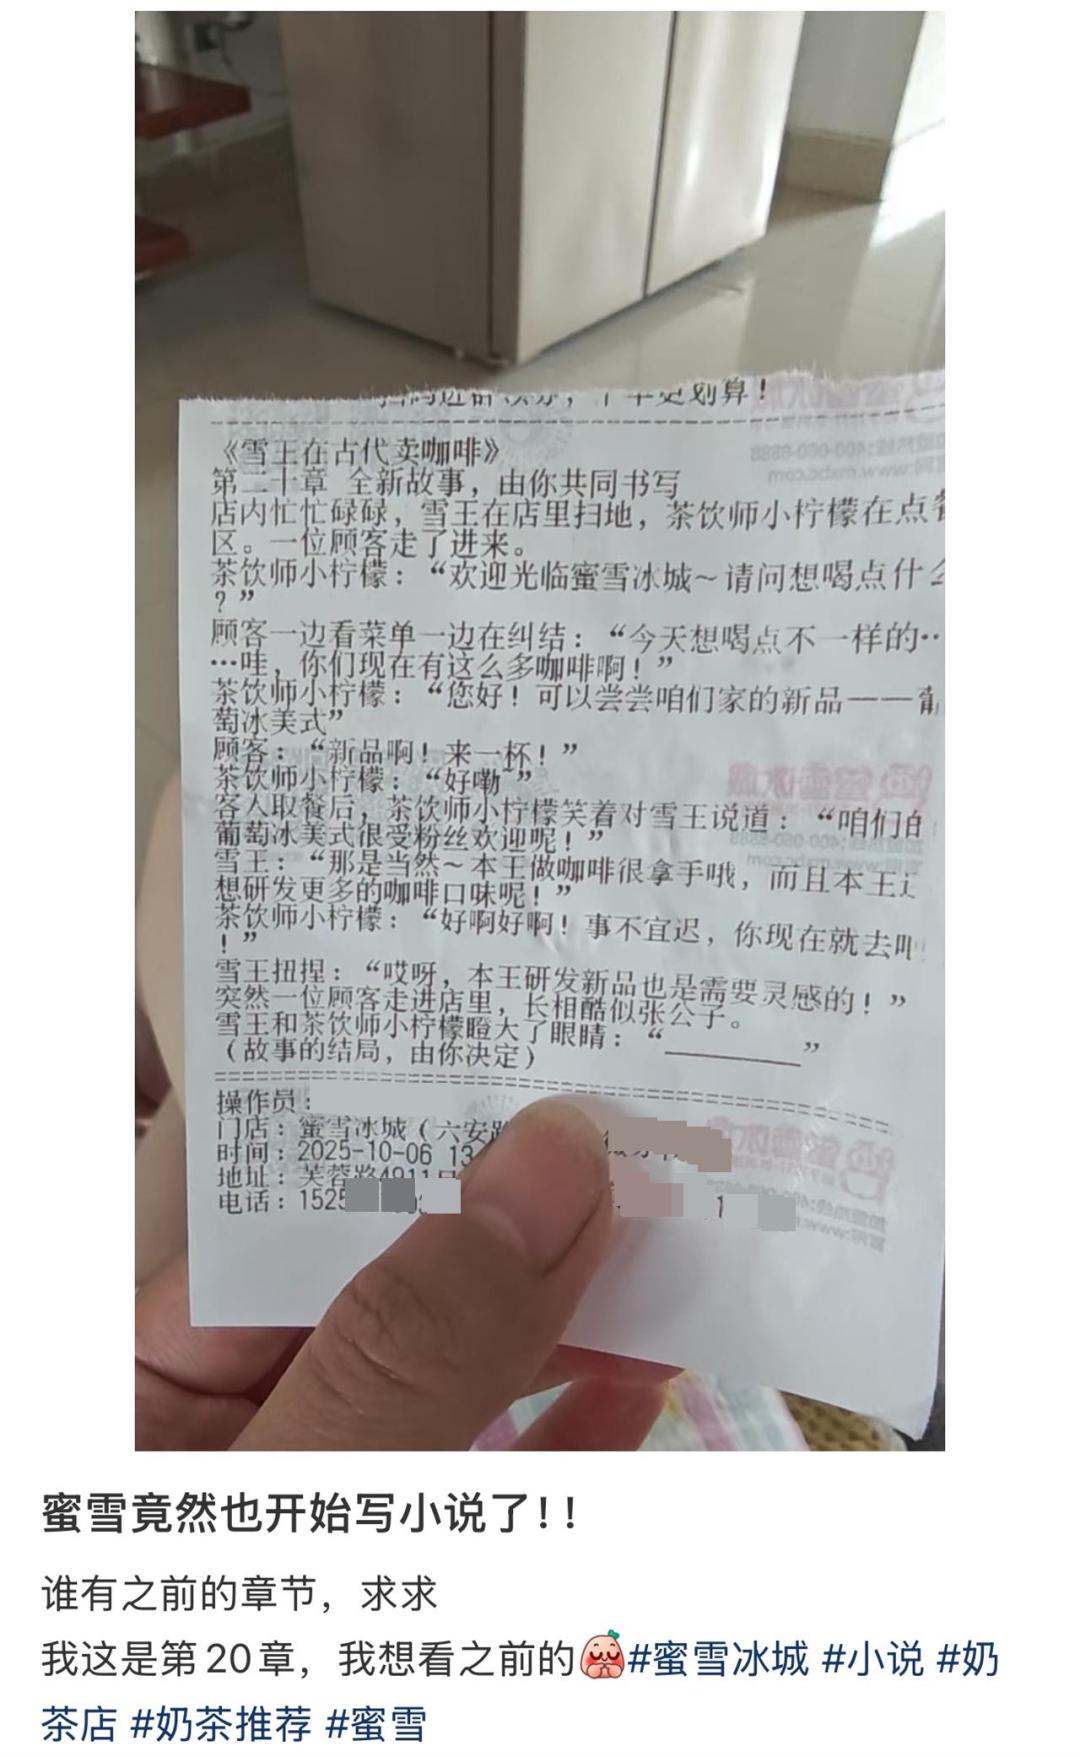 更划算！
《雪王在古代卖咖啡》
第二十章 全新故事，由你共同书写
店内忙忙碌碌，雪王在店里扫地，茶饮师小柠檬在点餐
区。一位顾客走了进来。
茶饮师小柠檬：“欢迎光临蜜雪冰城～请问想喝点什么
？”
顾客一边看菜单一边在纠结：“今天想喝点不一样的…
…哇，你们现在有这么多咖啡啊！”
茶饮师小柠檬：“您好！可以尝尝咱们家的新品——葡
萄冰美式”
顾客：“新品啊！来一杯！”
茶饮师小柠檬：“好嘞～”
客人取餐后，茶饮师小柠檬笑着对雪王说道：“咱们的
葡萄冰美式很受粉丝欢迎呢！”
雪王：“那是当然～本王做咖啡很拿手哦，而且本王还
想研发更多的咖啡口味呢！”
茶饮师小柠檬：“好啊好啊！事不宜迟，你现在就去吧
！”
雪王扭捏：“哎呀，本王研发新品也是需要灵感的！”
突然一位顾客走进店里，长相酷似张公子。
雪王和茶饮师小柠檬瞪大了眼睛：“________”
（故事的结局，由你决定）
操作员：
门店：蜜雪冰城（六安路
时间：2025-10-06 13
地址：芙蓉路4911号
电话：1525
蜜雪竟然也开始写小说了！！
谁有之前的章节，求求
我这是第20章，我想看之前的#蜜雪冰城 #小说 #奶
茶店 #奶茶推荐 #蜜雪